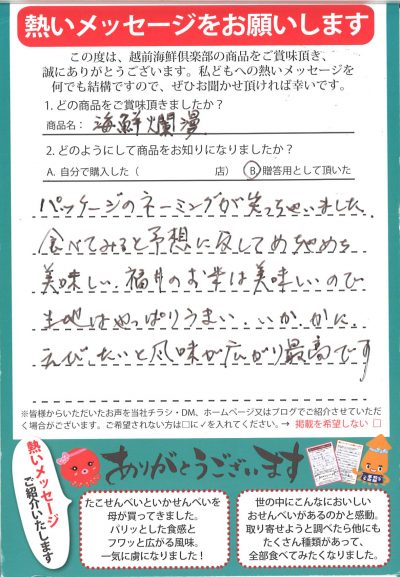 熱いメッセージをお願いします
この度は、越前海鮮倶楽部の商品をご賞味頂き、
誠にありがとうございます。私どもへの熱いメッセージを
何でも結構ですので、ぜひお聞かせ頂ければ幸いです。
1. どの商品をご賞味頂きましたか？
商品名： 海鮮爛漫
2. どのようにして商品をお知りになりましたか？
A. 自分で購入した（ 店） B 贈答用として頂いた
パッケージのネーミングが笑っちゃいました。
食べてみると予想に反してめちゃめちゃ
美味しい。福井のお米は美味しいので
生地はやっぱりうまい。いか、かに、
えび、たいと風味が広がり最高です
※皆様からいただいたお声を当社チラシ・DM、ホームページ又はブログでご紹介させていただ
く場合がございます。ご希望されない方は□に✓を入れてください。→ 掲載を希望しない □
熱いメッセージ
ご紹介いたします
ありがとうございます
たこせんべいといかせんべいを
母が買ってきました。
パリッとした食感と
フワッと広がる風味。
一気に虜になりました！
世の中にこんなにおいしい
おせんべいがあるのかと感動。
取り寄せようと調べたら他にも
たくさん種類があって、
全部食べてみたくなりました。